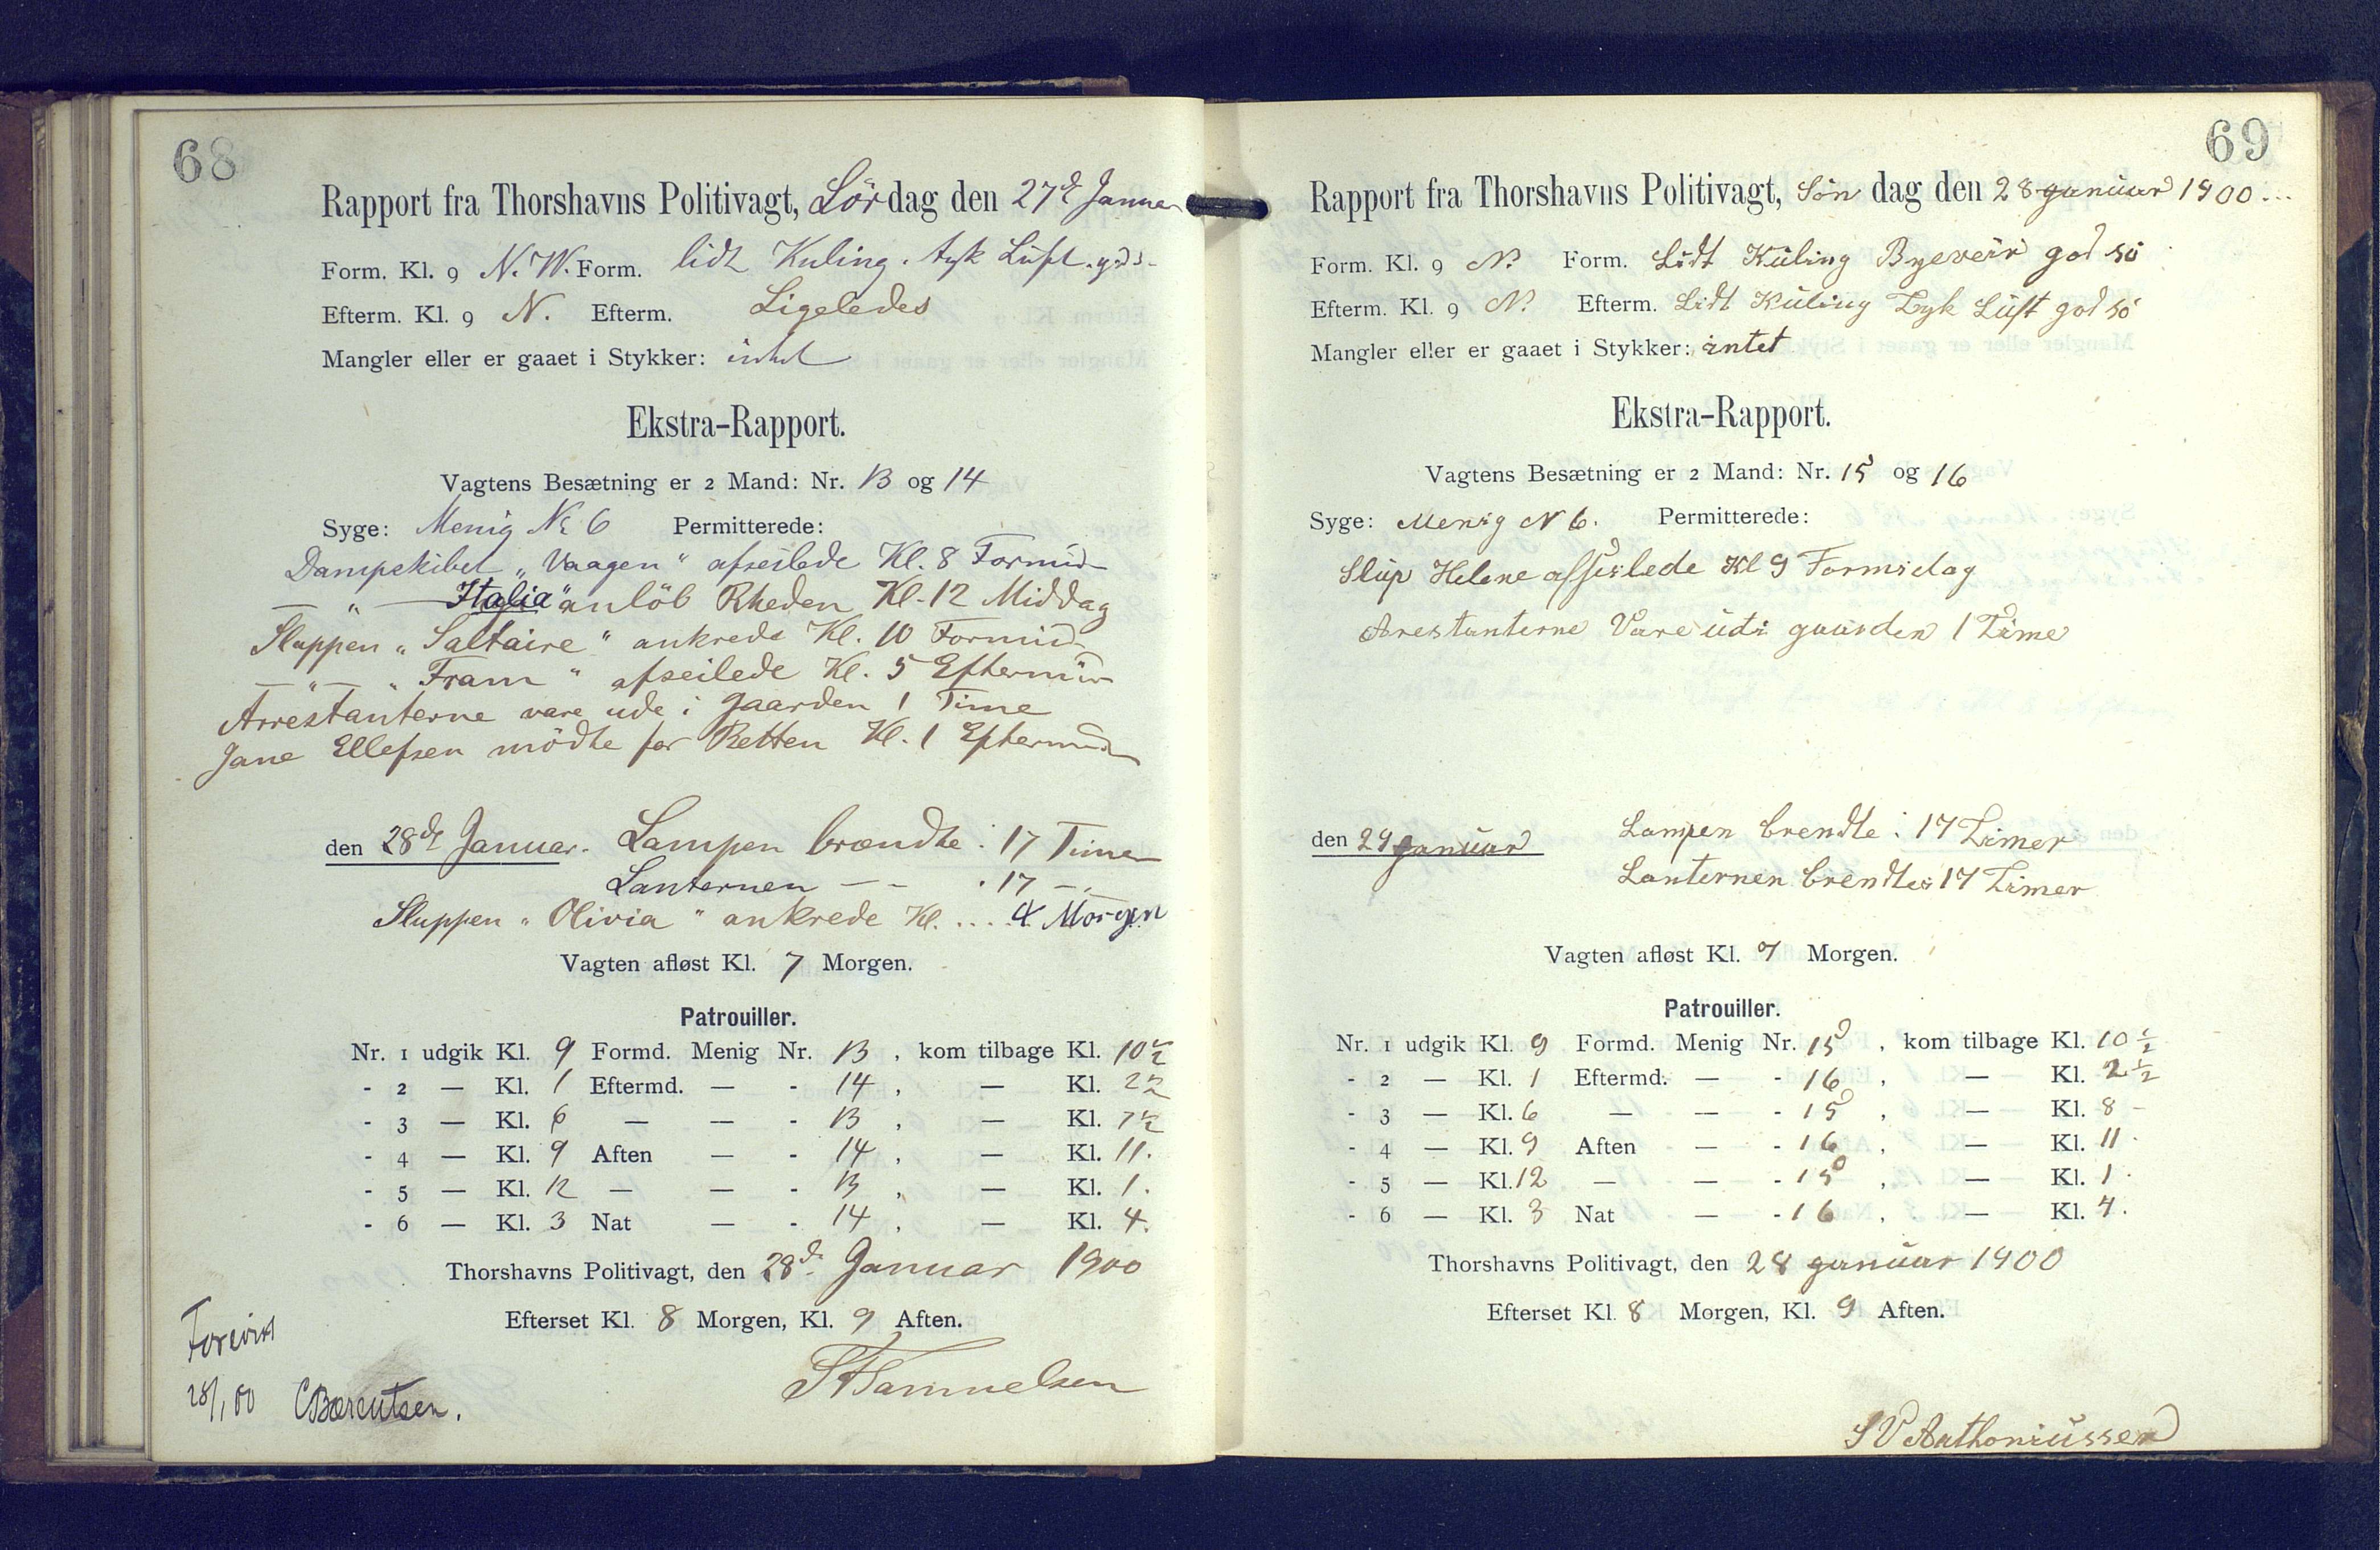 68
Rapport fra Thorshavns Politivagt, Lördag den 27d Januar
Form. Kl. 9 N.W. Form. lidt Kuling. tyk Luft.
Efterm. Kl. 9 N. Efterm. Ligeledes
Mangler eller er gaaet i Stykker: intet
Ekstra-Rapport.
Vagtens Besætning er 2 Mand: Nr. 13 og 14
Syge: Menig No 6 Permitterede:
Dampskibet „Vaagen" afseilede Kl. 8 Formid
— " — Italia" anlöb Rheden Kl. 12 Middag
Sluppen „Saltaire" ankrede Kl. 10 Formid
— " — „Fram" afseilede Kl. 5 Eftermid
Arrestanterne vare ude i Gaarden 1 Time
Jane Ellefsen mödte for Retten Kl. 1 Eftermid
den 28d Januar. Lampen brændte : 17 Timer
Lanternen — - . 17 —
Sluppen „Olivia" ankrede Kl. ... 4 Morgen
Vagten afløst Kl. 7 Morgen.
Patrouiller.
Nr. 1 udgik Kl. 9 Formd. Menig Nr. 13 , kom tilbage Kl. 10½
- 2 — Kl. 1 Eftermd. — - 14 , — Kl. 2½
- 3 — Kl. 6 — — - 13 , — Kl. 7½
- 4 — Kl. 9 Aften — - 14 , — Kl. 11.
- 5 — Kl. 12 — — - 13 , — Kl. 1.
- 6 — Kl. 3 Nat — - 14 , — Kl. 4.
Thorshavns Politivagt, den 28d. Januar 1900
Efterset Kl. 8 Morgen, Kl. 9 Aften.
Samuelsen
Forevist
28/1 00 CBærentsen.
69
Rapport fra Thorshavns Politivagt, Søn dag den 28 januar 1900...
Form. Kl. 9 N. Form. Lidt Kuling Byeveir god sö
Efterm. Kl. 9 N. Efterm. Lidt Kuling Tyk Luft god sö
Mangler eller er gaaet i Stykker: intet
Ekstra-Rapport.
Vagtens Besætning er 2 Mand: Nr. 15 og 16
Syge: Menig N 6. Permitterede:
Slup Helene afseilede Kl 9 Formidag
Arestanterne Vare udi gaarden 1 Time
den 29 januar Lampen brendte : 17 Timer
Lanternen brendte : 17 Timer
Vagten afløst Kl. 7 Morgen.
Patrouiller.
Nr. 1 udgik Kl. 9 Formd. Menig Nr. 15 , kom tilbage Kl. 10½
- 2 — Kl. 1 Eftermd. — - 16 , — Kl. 2½
- 3 — Kl. 6 — — - 15 , — Kl. 8 -
- 4 — Kl. 9 Aften — - 16 , — Kl. 11 .
- 5 — Kl. 12 — — - 15 , — Kl. 1 .
- 6 — Kl. 3 Nat — - 16 , — Kl. 4 .
Thorshavns Politivagt, den 28 januar 1900
Efterset Kl. 8 Morgen, Kl. 9 Aften.
SV Anthoniussen